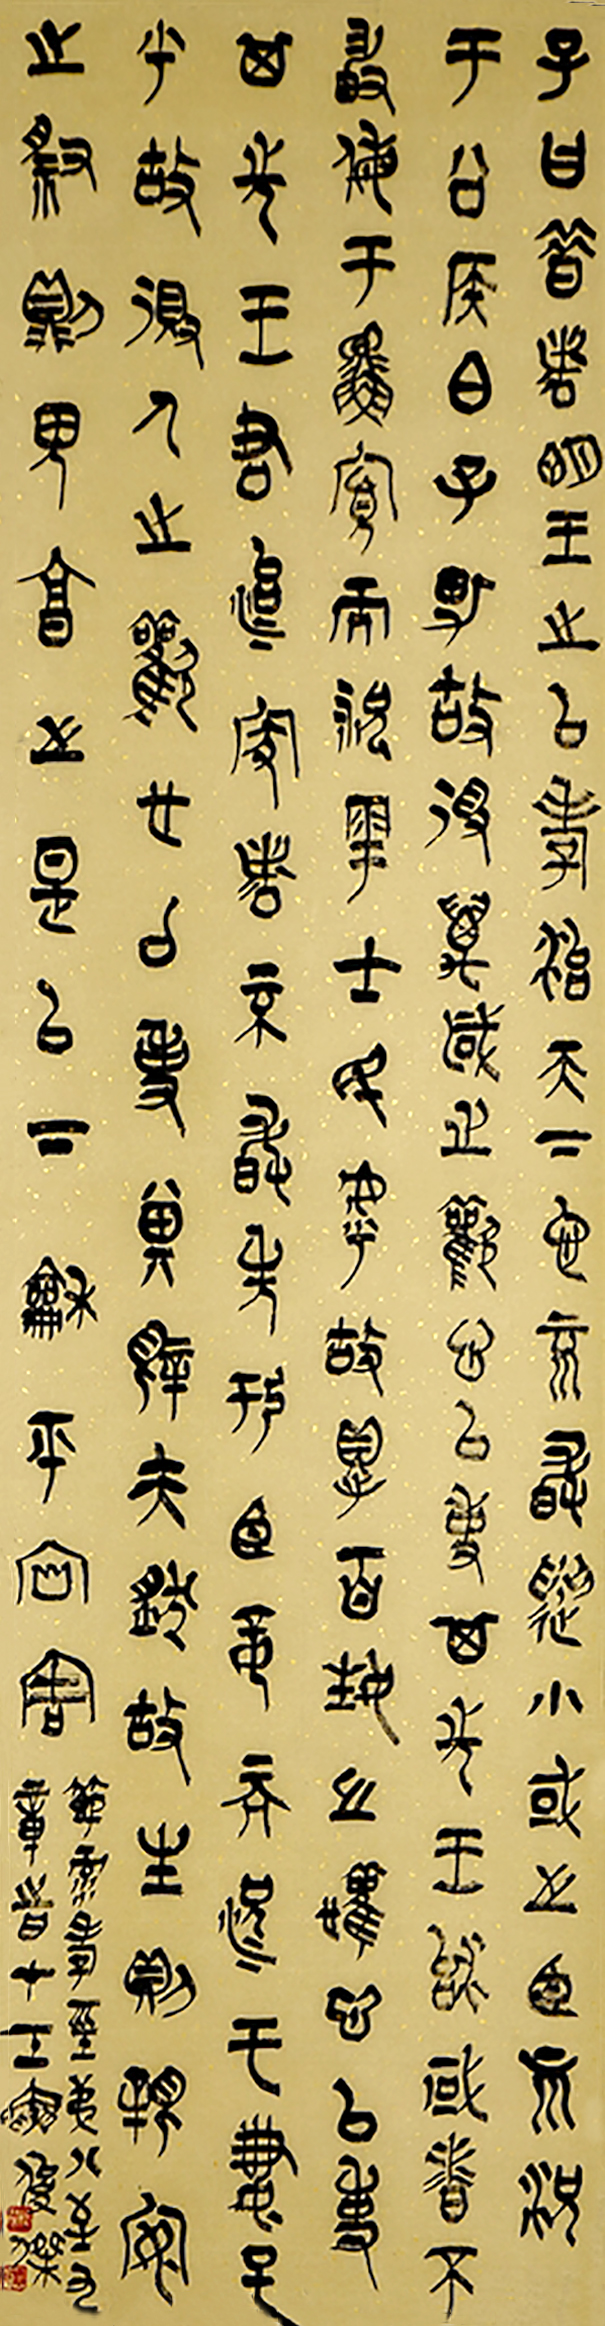 子曰昔者明王之以孝治天下也不敢遺小國之臣而況
于公侯伯子男故得萬國之歡心以事其先王治國者不
敢侮于鰥寡而況雩士民乎故得百姓之歡心以事
其先王君治家者不敢失于臣妾而況于妻子
乎故得人之歡心以事其親夫然故生則親安
之祭則鬼享之是以下龢平害
節录孝經第八孝治
章俊傑